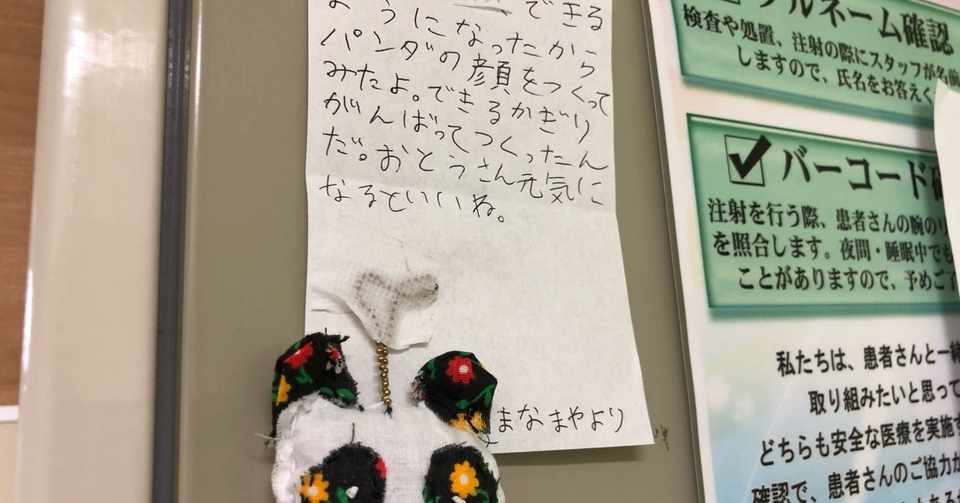 できる
ようになったから
パンダの顔をつくって
みたよ。できるかぎり
がんばってつくったん
だ。おとうさん元気に
なるといいね。
まなまやより
フルネーム確認
検査や処置、注射の際にスタッフが名前
しますので、氏名をお答えく
バーコード確
注射を行う際、患者さんの腕のリ
を照合します。夜間・睡眠中でも
ことがありますので、予めご了
私たちは、患者さんと一緒
取り組みたいと思って
どちらも安全な医療を実施す
確認で、患者さんのご協力が